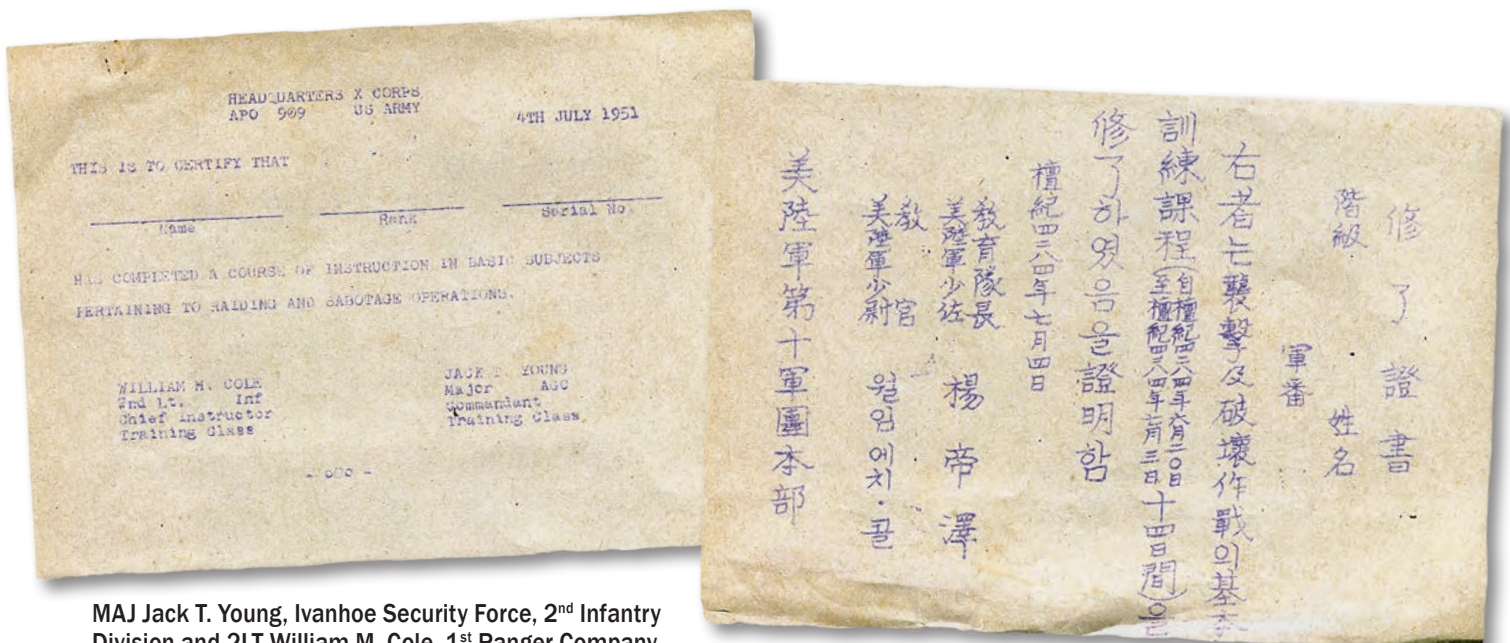 HEADQUARTERS X CORPS
APO 909 US ARMY
4TH JULY 1951
THIS IS TO CERTIFY THAT
Name Rank Serial No.
HAS COMPLETED A COURSE OF INSTRUCTION IN BASIC SUBJECTS
PERTAINING TO RAIDING AND SABOTAGE OPERATIONS.
WILLIAM H. COLE
2nd Lt. Inf
Chief Instructor
Training Class
JACK T. YOUNG
Major AGC
Commandant
Training Class
- oOo -
修了證書
階級 姓名
軍番
右者는襲擊及破壞作戰의基本
訓練課程(自檀紀四二八四年六月二〇日
至檀紀四二八四年七月三日十四日間)을
修了하였음을證明함
檀紀四二八四年七月四日
教育隊長
美陸軍少佐 楊帝澤
教官
美陸軍少尉 월임에치·콜
美陸軍第十軍團本部
MAJ Jack T. Young, Ivanhoe Security Force, 2nd Infantry
Division and 2LT William M. Cole, 1st Ranger Company